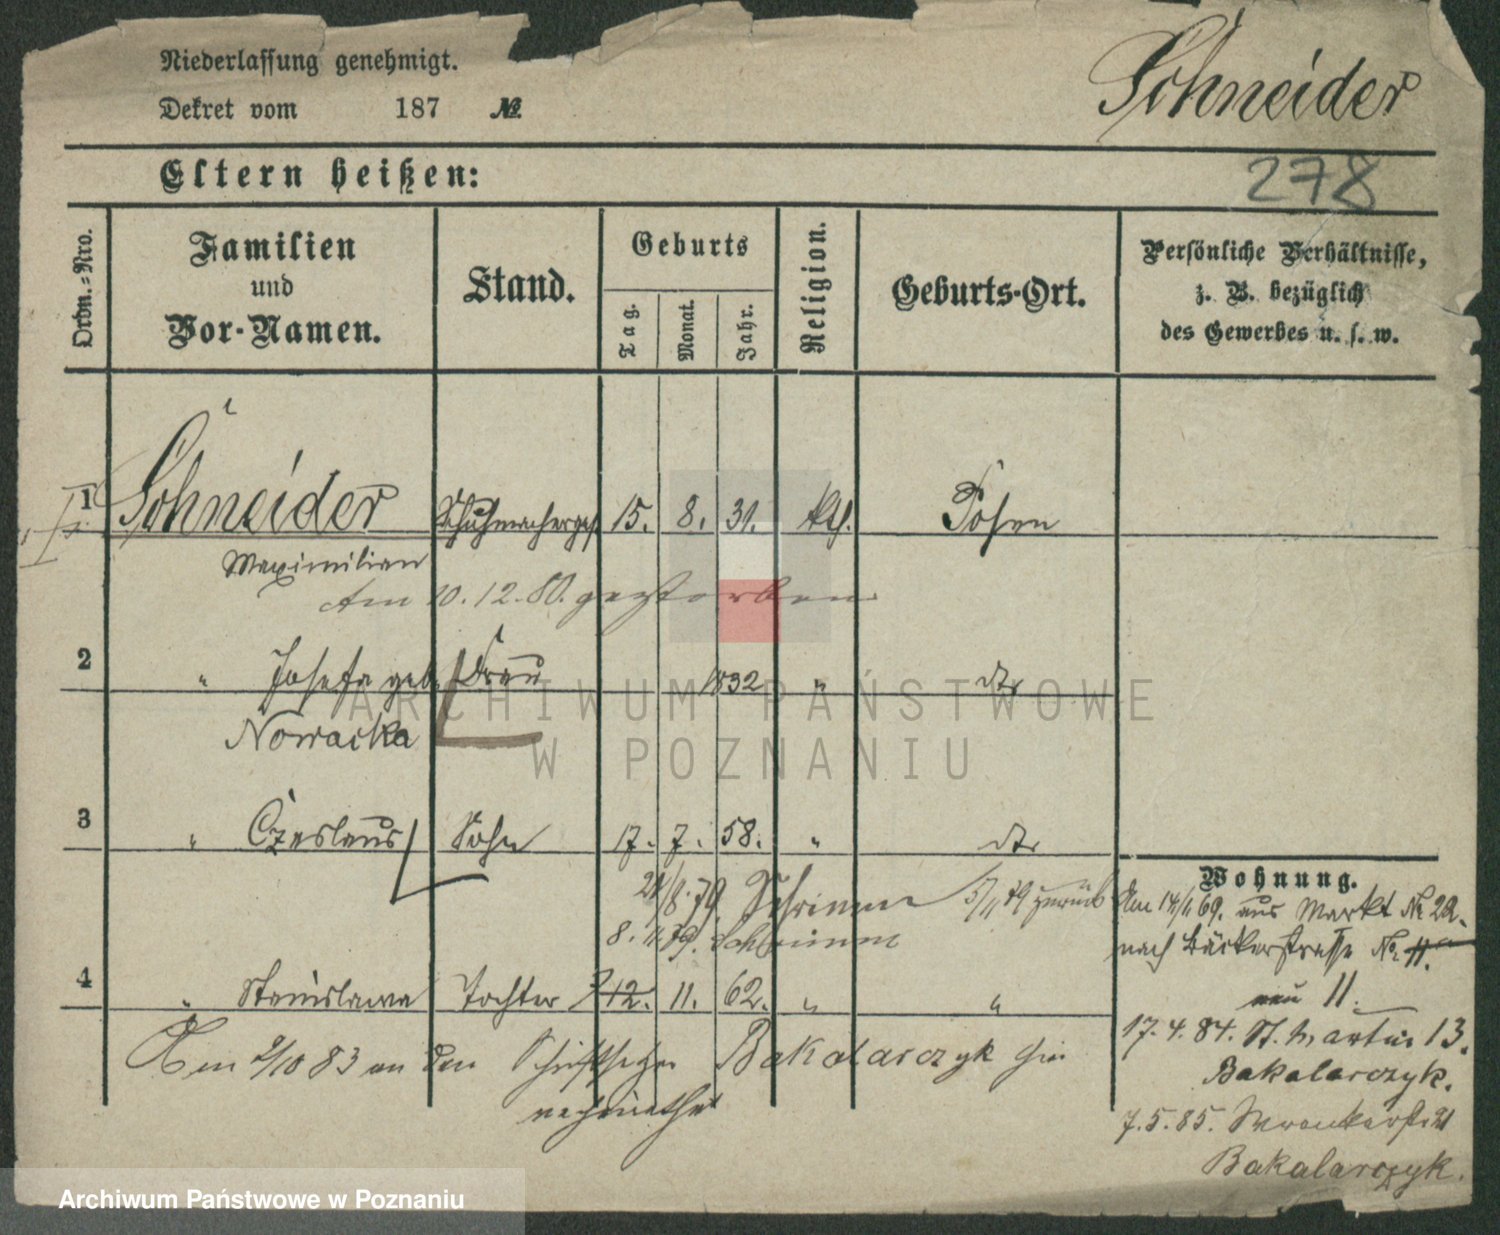 Niederlassung genehmigt.
Dekret vom 187 №.
Schneider
Eltern heißen:
278
Ordn.-Nro.
Familien und Vor-Namen.
Stand.
Geburts
Tag.
Monat.
Jahr.
Religion.
Geburts-Ort.
Persönliche Verhältnisse,
z. B. bezüglich
des Gewerbes u. s. w.
1 Schneider Schuhmacherges. 15. 8. 31. kth. Posen
Maximilian
Am 10.12.80. gestorben
2 " Josefa geb. Frau 1832 " dto
Nowacka
3 " Czeslaus Sohn 17. 7. 58. " dto
/8.79. Schrimm 5/11 79 zurück
8.11.79. Schrimm
4 " Stanislawa Tochter 7 12. 11. 62. " "
Am 2/10 83 an den Schriftsetzer Bakalarczyk hier
verheirathet
Wohnung.
Am 69. aus Markt № 22.
nach Bäckerstrasse №. 11.
neu 11.
17.4.84. St. Martin 13.
Bakalarczyk.
7.5.85. Wronkerstr 21
Bakalarczyk.
ARCHIWUM PAŃSTWOWE
W POZNANIU
Archiwum Państwowe w Poznaniu